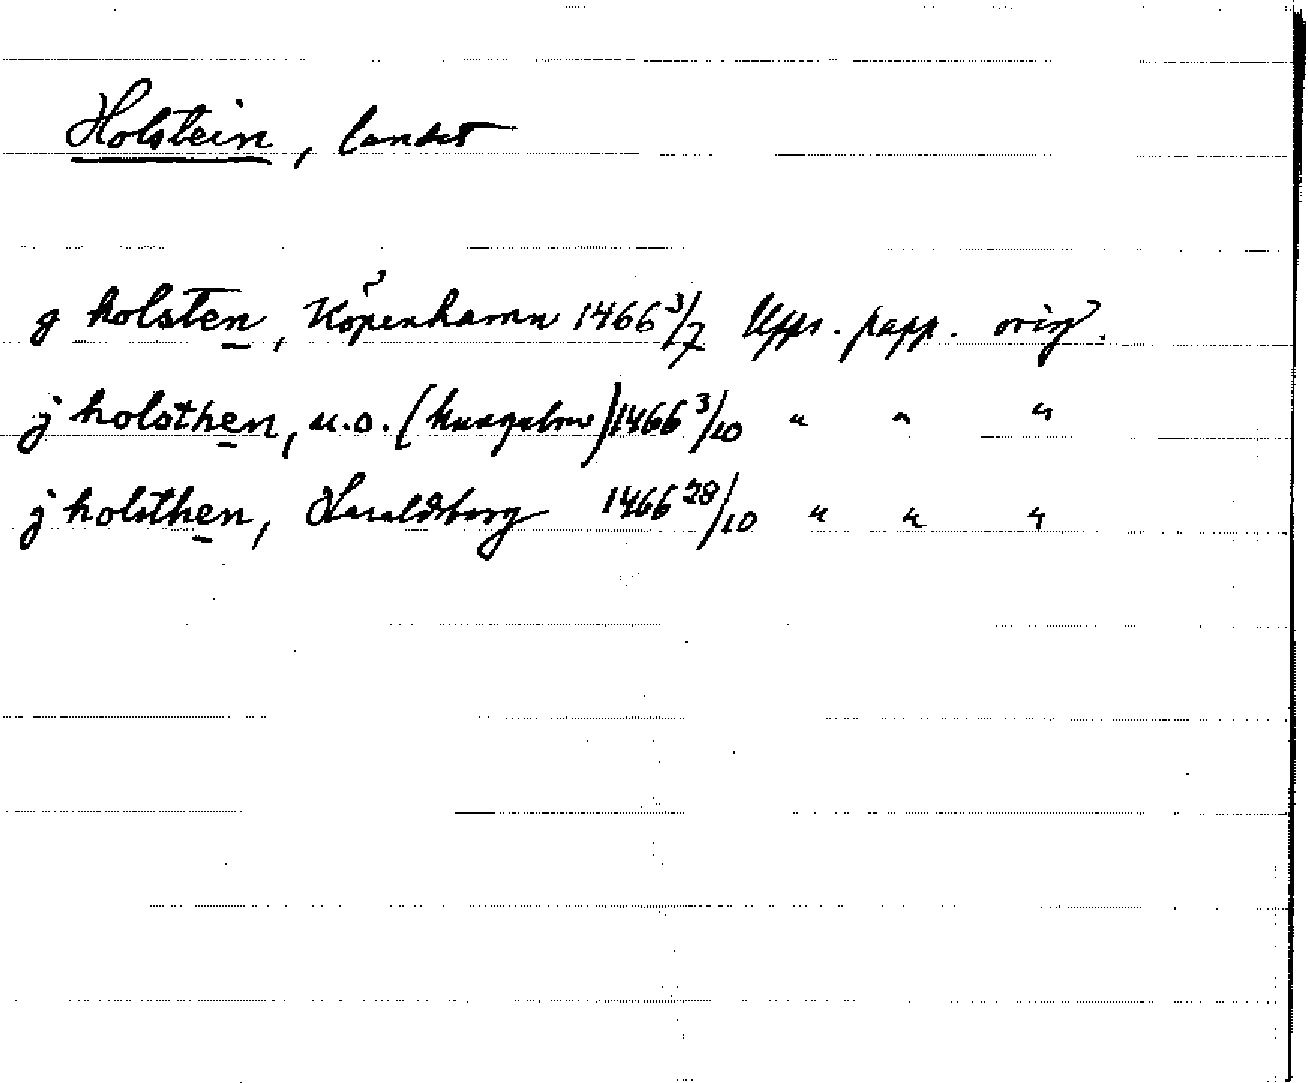 Holstein, landet
g holsten, Köpenhamn 1466 3/7 Upps. papp. orig.
j holsthen, u.o. () 1466 3/10 " " "
j holsthen, Haraldsborg 1466 28/10 " " "